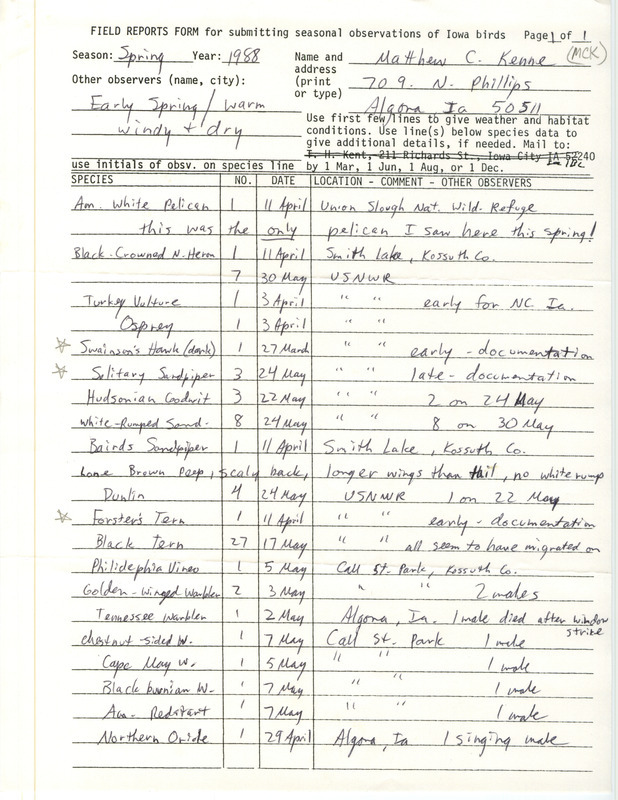 FIELD REPORTS FORM for submitting seasonal observations of Iowa birds Page 1 of 1
(MCK)
Season: Spring Year: 1988 Name and address (print or type) Matthew C. Kenne
709. N. Phillips
Algona Ia 50511
Other observers (name, city):
Early Spring / warm
windy + dry
Use first few lines to give weather and habitat
conditions. Use line(s) below species data to
give additional details, if needed. Mail to:
T. H. Kent, 211 Richards St., Iowa City IA 52240
use initials of obsv. on species line by 1 Mar, 1 Jun, 1 Aug, or 1 Dec.
SPECIES NO. DATE LOCATION - COMMENT - OTHER OBSERVERS
Am. White Pelican 1 11 April Union Slough Nat. Wild. Refuge
this was the only pelican I saw here this spring!
Black-Crowned N. Heron 1 11 April Smith Lake, Kossuth Co.
7 30 May USNWR
Turkey Vulture 1 3 April " " early for NC Ia.
Osprey 1 3 April " "
☆ Swainson's Hawk (dark) 1 27 March " " early - documentation
☆ Solitary Sandpiper 3 24 May " " late - documentation
Hudsonian Godwit 3 22 May " " 2 on 24 May
White-Rumped Sand. 8 24 May " " 8 on 30 May
Bairds Sandpiper 1 11 April Smith Lake, Kossuth Co.
Lone Brown Peep, scaly back, longer wings than tail, no white rump
Dunlin 4 24 May USNWR 1 on 22 May
☆ Forster's Tern 1 11 April " " early - documentation
Black Tern 27 17 May " " all seem to have migrated on
Philidephia Vireo 1 5 May Call St. Park, Kossuth Co.
Golden-Winged Warbler 2 3 May " " 2 males
Tennessee Warbler 1 2 May Algona, Ia. 1 male died after window strike
Chestnut-sided W. 1 7 May Call St. Park 1 male
Cape May W. 1 5 May " " 1 male
Blackburnian W. 1 7 May " " 1 male
Am. Redstart 1 7 May " " 1 male
Northern Oriole 1 29 April Algona, Ia 1 singing male